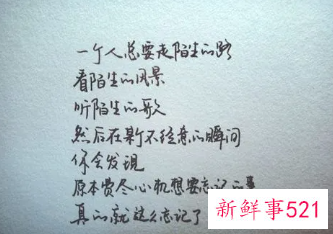 一个人总要走陌生的路
看陌生的风景
听陌生的歌
然后在某个不经意的瞬间
你会发现
原本费尽心机想要忘记的
真的就这么忘记了
新鲜事521